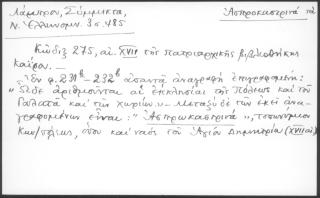 Λάμπρου, Σύμμικτα, Ἀσπροκαστρινά τὰ
Ν. Ἑλληνομν. 3 σ. 485
Κῶδιξ 275, αἰ. XVII τῆς πατριαρχικῆς βιβλιοθήκης
Καΐρου. —
Ἐν φ. 231β - 232β ἀπαντᾷ ἀναγραφὴ ἐπιγραφομένη:
"ὧδε ἀριθμοῦνται αἱ ἐκκλησίαι τῆς Πόλεως καὶ τοῦ
Γαλατᾶ καὶ τῶν χωρίων". — Μεταξὺ δὲ τῶν ἐκεῖ ἀνα-
γραφομένων εἶναι: "Ἀσπρωκαστρινά", τοπωνύμιον
Κων/πόλεως, ὅπου καὶ ναὸς τοῦ Ἁγίου Δημητρίου (XVII αἰ)